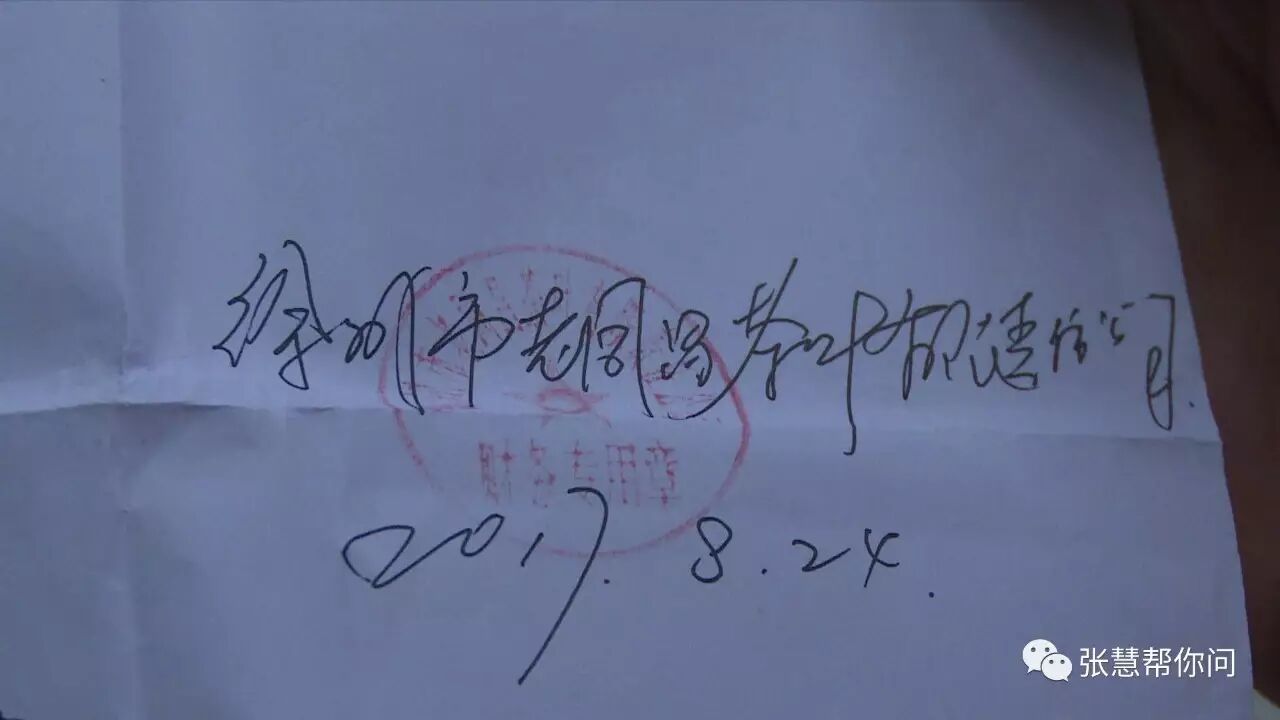 徐州市老同昌茶叶有限公司.
财务专用章
2017.8.24.
张慧帮你问